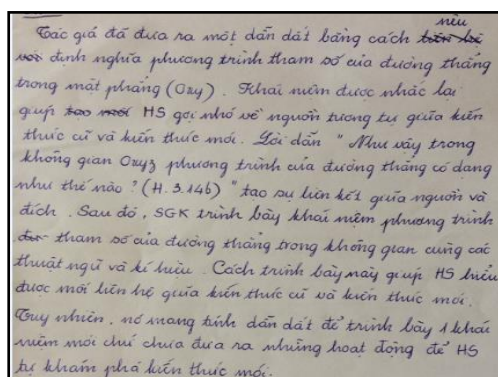 nêu
Các giả đã đưa ra một dẫn dắt bằng cách
định nghĩa phương trình tham số của đường thẳng
trong mặt phẳng (Oxy). Khái niệm được nhắc lại
giúp HS gợi nhớ về nguồn tương tự giữa kiến
thức cũ và kiến thức mới. Lời dẫn "Như vậy trong
không gian Oxyz phương trình của đường thẳng có dạng
như thế nào? (H.3.14b)" tạo sự liên kết giữa nguồn và
đích. Sau đó, SGK trình bày khái niệm phương trình
tham số của đường thẳng trong không gian cùng các
thuật ngữ và kí hiệu. Cách trình bày này giúp HS hiểu
được mối liên hệ giữa kiến thức cũ và kiến thức mới.
Tuy nhiên, nó mang tính dẫn dắt để trình bày 1 khái
niệm mới chứ chưa đưa ra những hoạt động để HS
tự khám phá kiến thức mới.